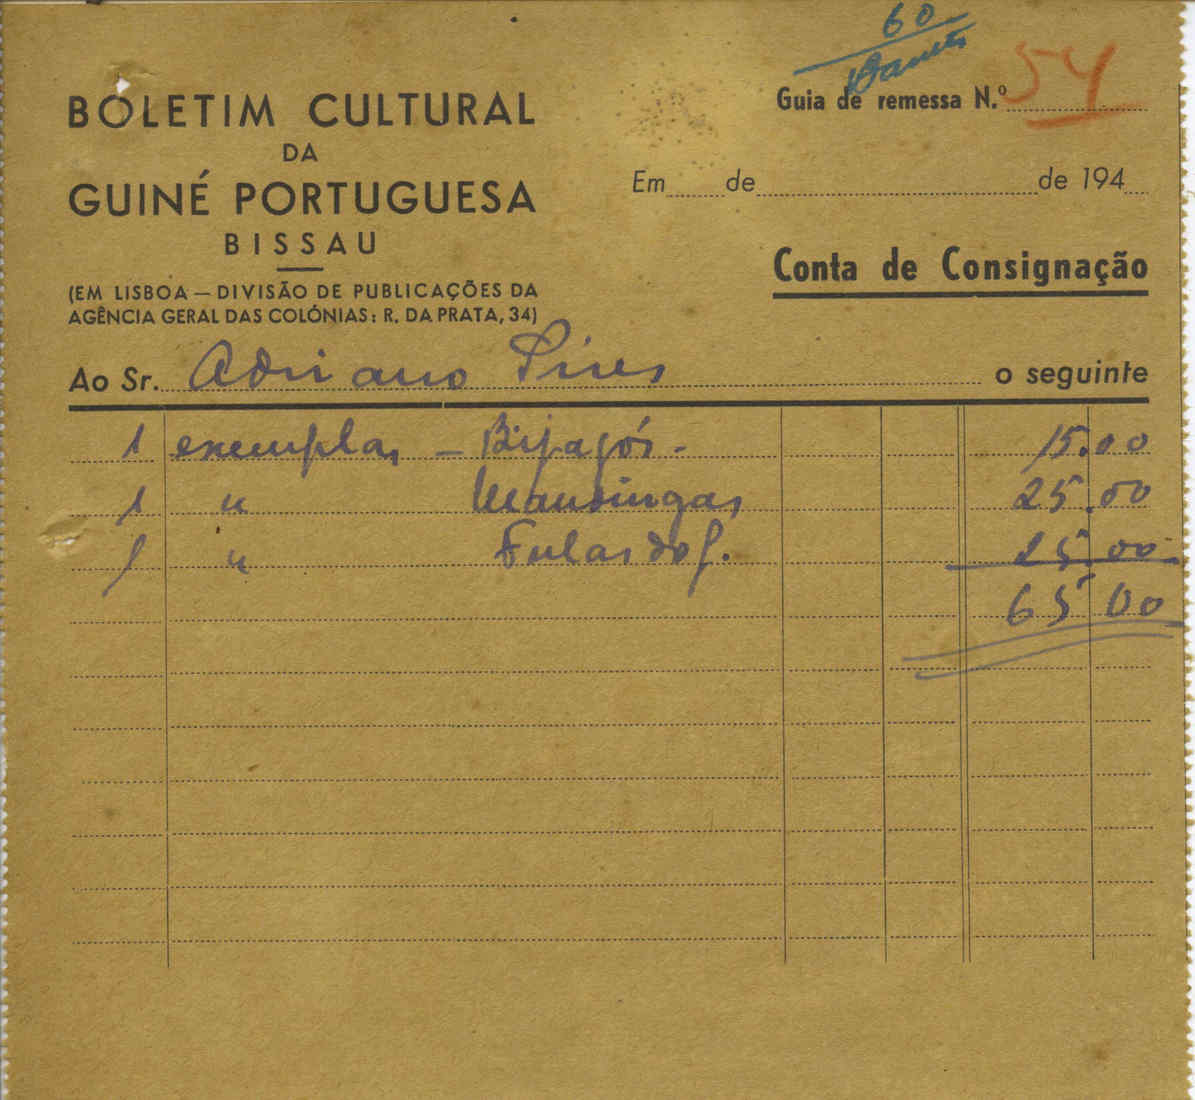 60
BOLETIM CULTURAL
DA
GUINÉ PORTUGUESA
BISSAU
(EM LISBOA — DIVISÃO DE PUBLICAÇÕES DA
AGÊNCIA GERAL DAS COLÓNIAS: R. DA PRATA, 34)
Guia de remessa N.º 54
Em de de 194
Conta de Consignação
Ao Sr. Adriano Pires o seguinte
1 exemplar — Bijagós - 15.00
1 " Mandingas 25.00
1 " Fulas do g. 25.00
65 00